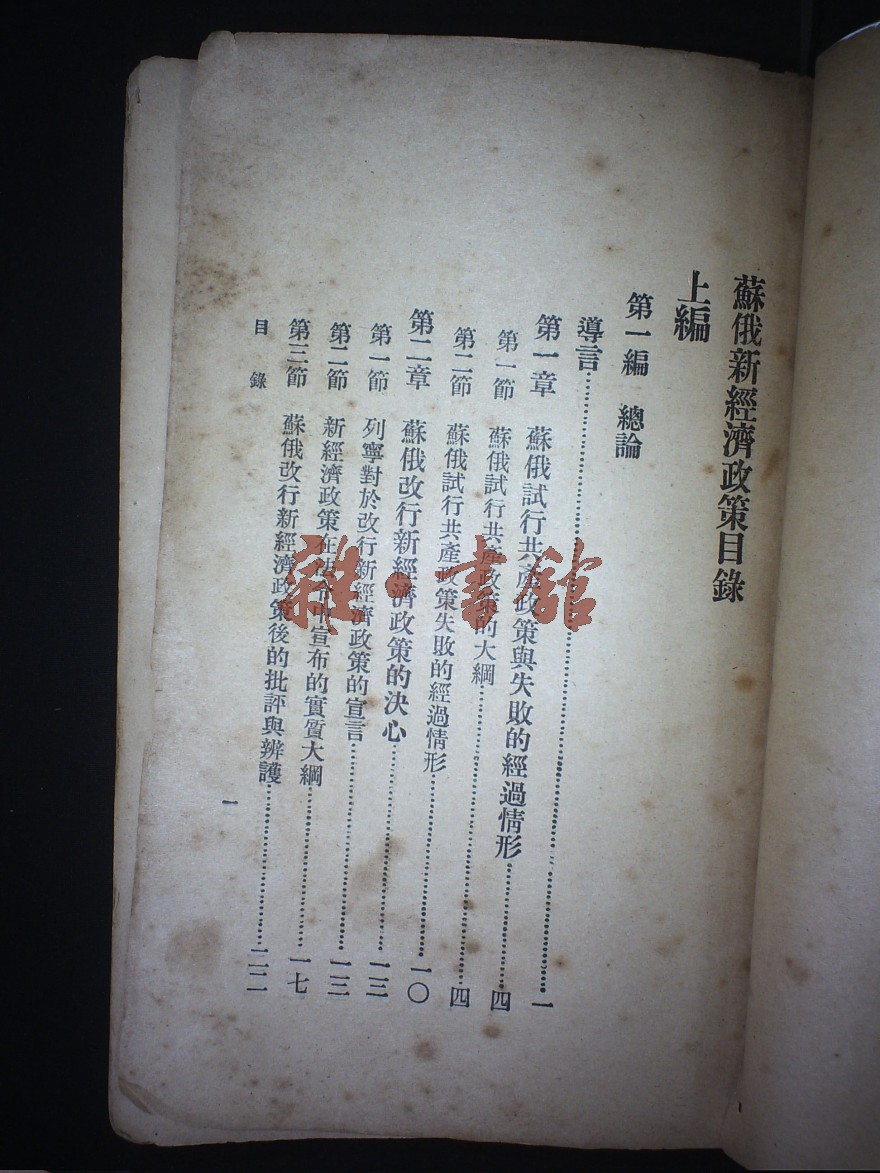 蘇俄新經濟政策目錄
上編
第一編 總論
導言……一
第一章 蘇俄試行共產政策與失敗的經過情形……四
第一節 蘇俄試行共產政策的大綱……四
第二節 蘇俄試行共產政策失敗的經過情形……一〇
第二章 蘇俄改行新經濟政策的決心……一三
第一節 列寧對於改行新經濟政策的宣言……一三
第二節 新經濟政策在法令中宣布的實質大綱……一七
第三節 蘇俄改行新經濟政策後的批評與辨護……二二
目錄
一
雜·書館